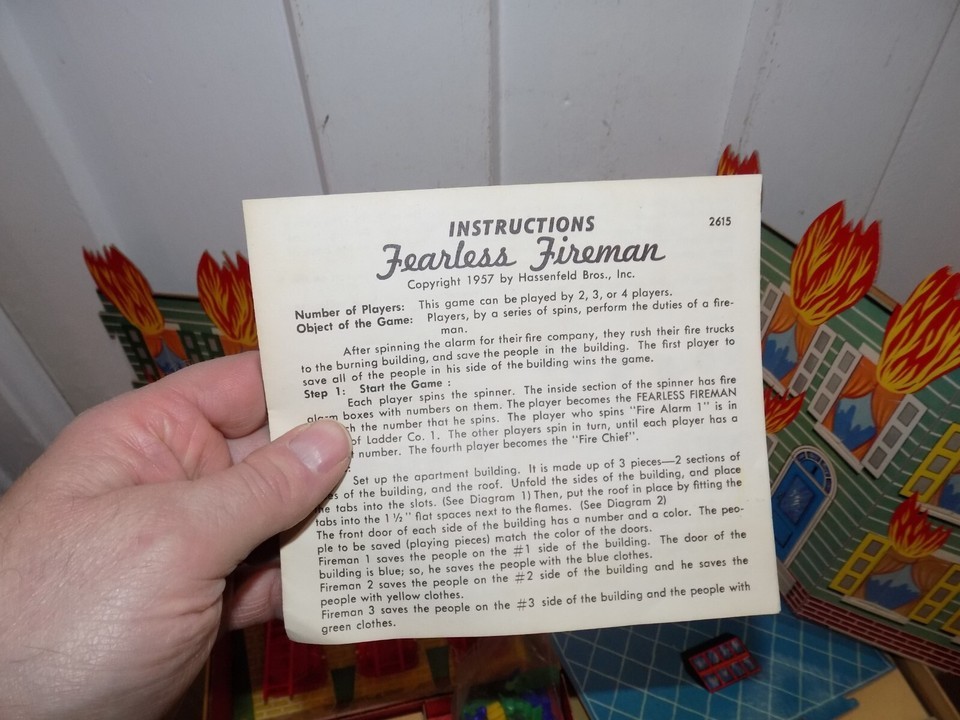 INSTRUCTIONS
2615
Fearless Fireman
Copyright 1957 by Hassenfeld Bros., Inc.
Number of Players: This game can be played by 2, 3, or 4 players.
Object of the Game: Players, by a series of spins, perform the duties of a fire-
man.
After spinning the alarm for their fire company, they rush their fire trucks
to the burning building, and save the people in the building. The first player to
save all of the people in his side of the building wins the game.
Step 1: Start the Game :
Each player spins the spinner. The inside section of the spinner has fire
alarm boxes with numbers on them. The player becomes the FEARLESS FIREMAN
the number that he spins. The player who spins "Fire Alarm 1" is in
of Ladder Co. 1. The other players spin in turn, until each player has a
number. The fourth player becomes the "Fire Chief".
Set up the apartment building. It is made up of 3 pieces—2 sections of
of the building, and the roof. Unfold the sides of the building, and place
the tabs into the slots. (See Diagram 1) Then, put the roof in place by fitting the
tabs into the 1 ½" flat spaces next to the flames. (See Diagram 2)
The front door of each side of the building has a number and a color. The peo-
ple to be saved (playing pieces) match the color of the doors.
Fireman 1 saves the people on the #1 side of the building. The door of the
building is blue; so, he saves the people with the blue clothes.
Fireman 2 saves the people on the #2 side of the building and he saves the
people with yellow clothes.
Fireman 3 saves the people on the #3 side of the building and the people with
green clothes.